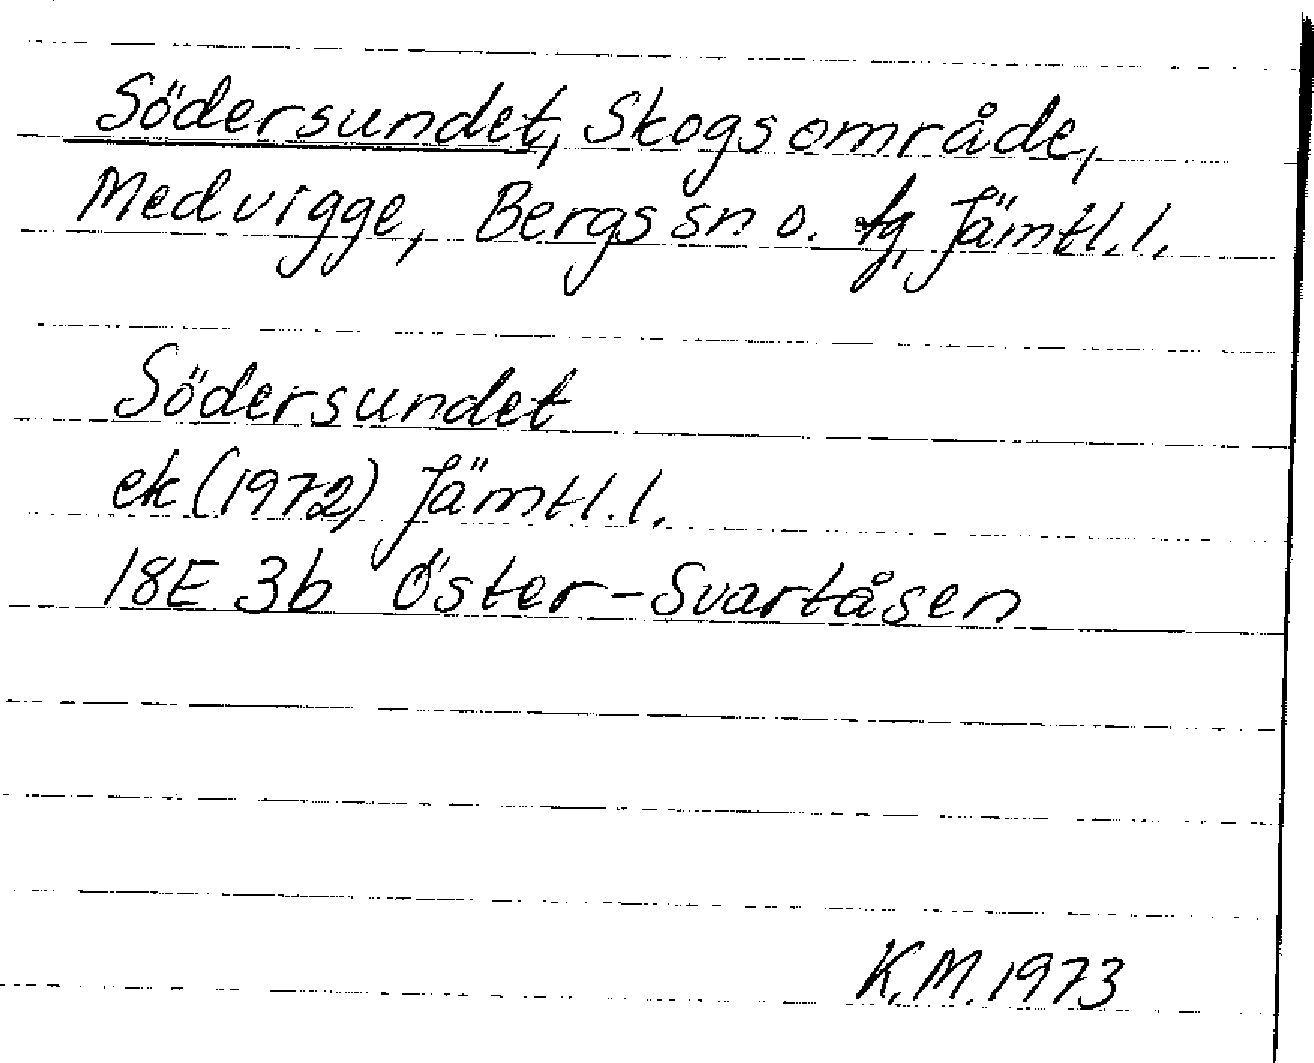 Södersundet, Skogsområde,
Medvigge, Bergs sn o. tg, Jämtl.l.
Södersundet
ek (1972) Jämtl.l.
18E 3b Öster-Svartåsen
K.M. 1973